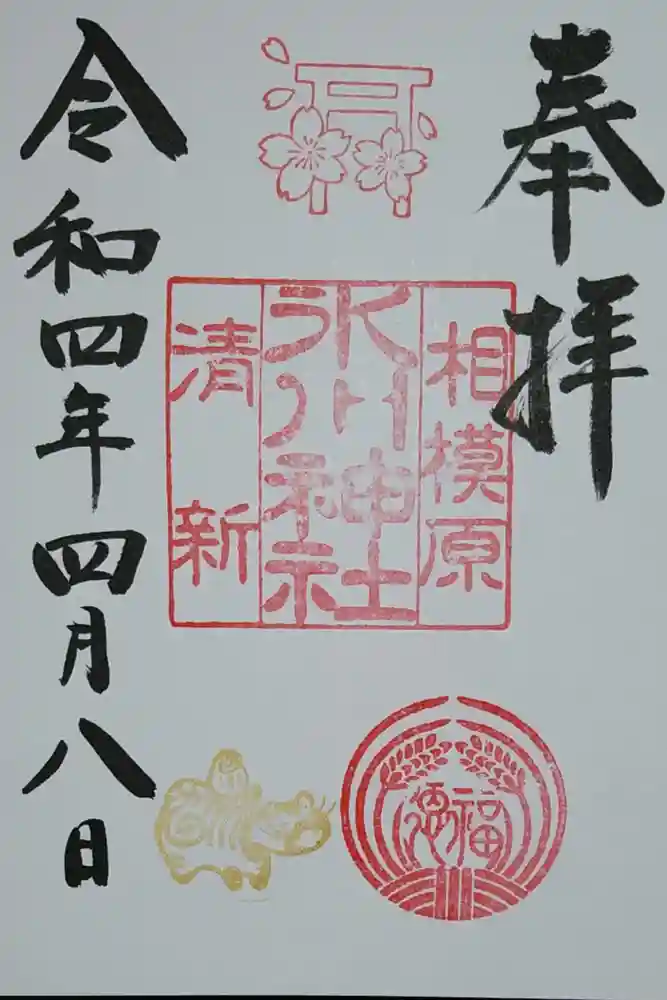 奉拝
相模原
氷川神社
清新
令和四年四月八日
福